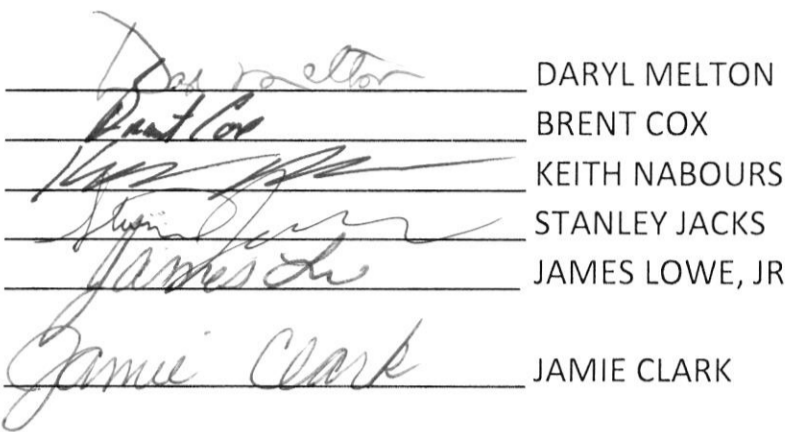 Daryl Melton DARYL MELTON
Brent Cox BRENT COX
KEITH NABOURS
STANLEY JACKS
James LOWE, JR
Jamie Clark JAMIE CLARK